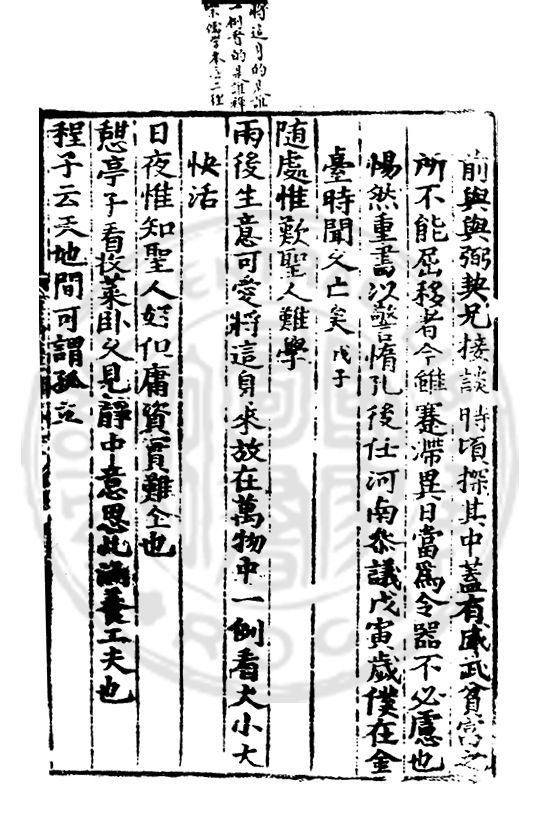 前與與弼執兄接談時頃探其中蓋有威武貧富之
所不能屈移者今雖蹇滯異日當爲令器不必慮也
惕然重書以警惰孔後任河南叅議戊寅歲僕在金
臺時聞父亡矣戊子
随處惟歎聖人難學
雨後生意可愛將這身来放在萬物中一例看大小大
快活
日夜惟知聖人好但庸資實難企也
憩亭子看收菜卧久見靜中意思此涵養工夫也
程子云天地間可謂孤立
將這身的是誰
一例看的是誰釋